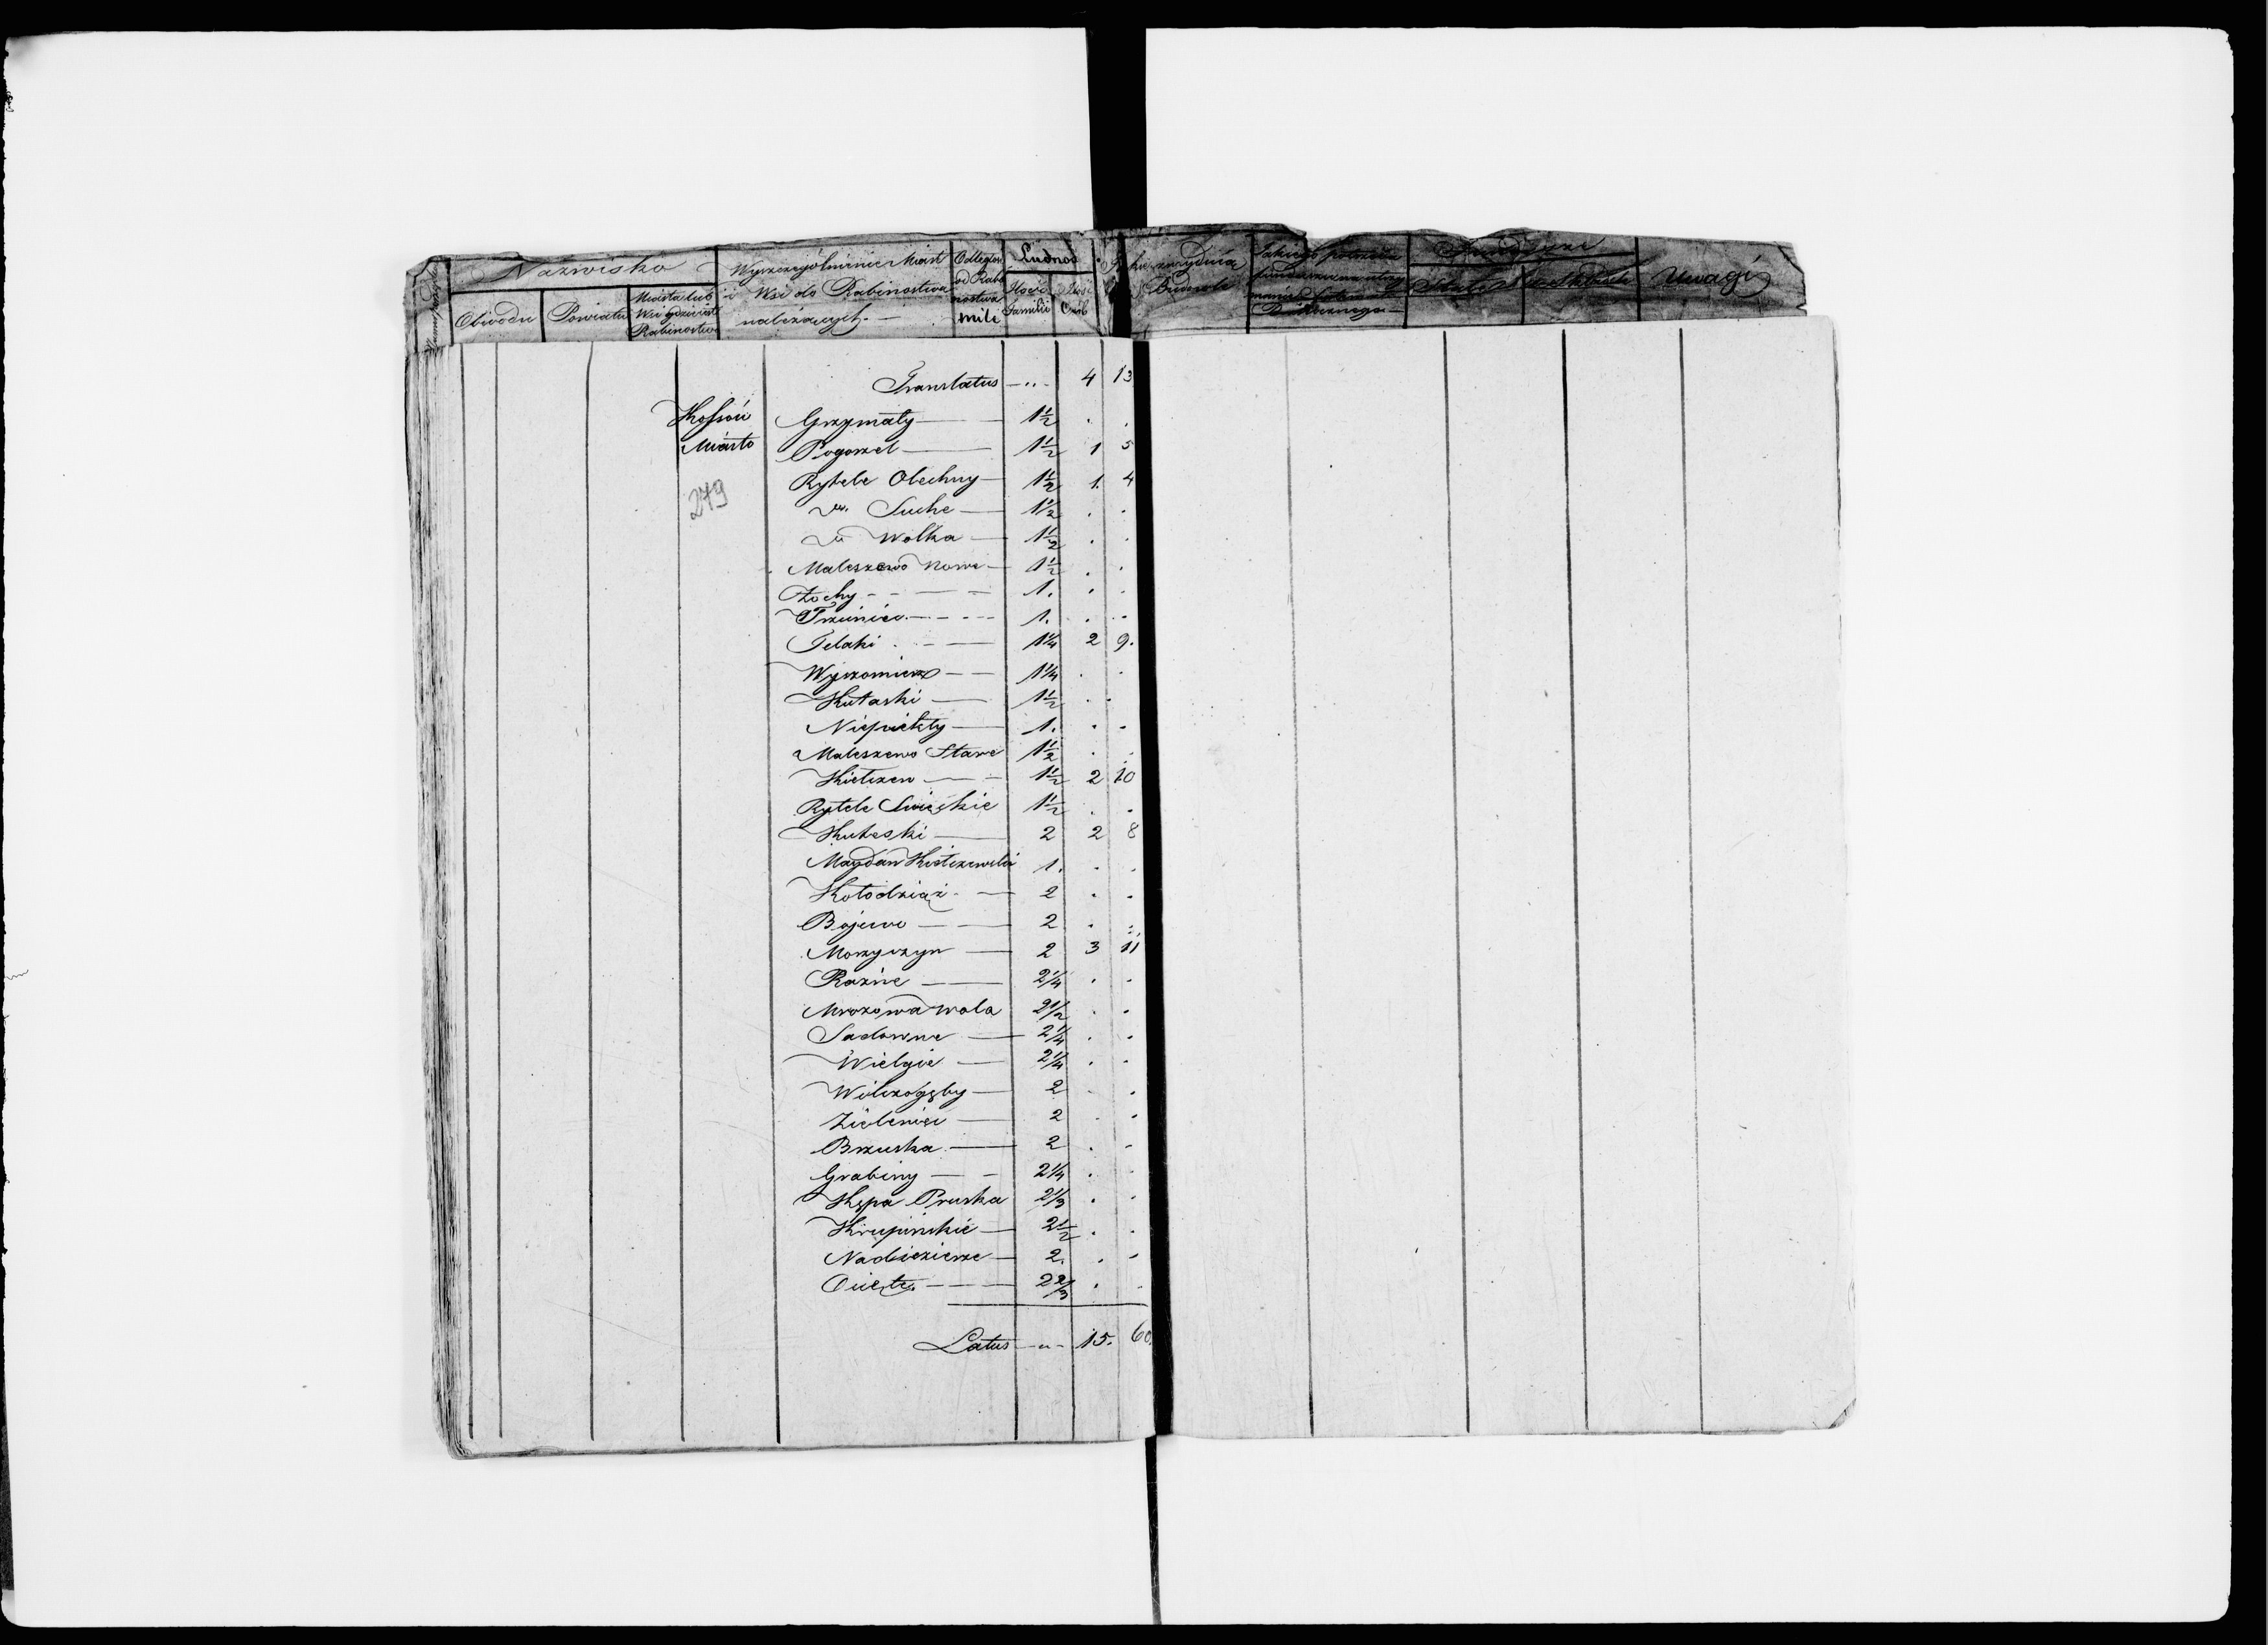 Nazwisko
Wyszczególnienie Miast
i Wsi do Rabinostwa
należących.
Odległość
od Rabi
nostwa
mili
Ludność
Ilość
Familii
Ilość
Osób
Obwodu
Powiatu
Miasta lub
Wsi gdzie jest
Rabinostwo
Uwagi
Translatus — „ — 4 13
Kossów Grzymały — 1½ . .
Miasto Pogorzel — 1½ 1 5
Rytele Olechny — 1½ 1. 4
279
„ Suche — 1½ . .
„ Wolka — 1½ . .
Maleszewo Nowe — 1½ . .
Żochy — 1. . .
Trzciniec — 1. . .
Telaki — 1¼ 2 9.
Wyszomierz — 1¼ . .
Kutaski — 1½ . .
Niepiekły — 1. . .
Maleszewo Stare 1½ . .
Kiełczew — 1½ 2 10
Rytele Święckie 1½ . .
Kuteski — 2 2 8
Maydan Kiełczewski 1. . .
Kołodziąż — 2 . .
Bojewo — 2 . .
Morzyczyn — 2 3 11
Raźne — 2¼ . .
Mrozowa Wola 2½ . .
Sadowne — 2¼ . .
Wielgie — 2¼ . .
Wilczogęby — 2 . .
Zieleniec — 2 . .
Brzuska — 2 . .
Grabiny — 2¼ . .
Kępa Pruska 2⅓ . .
Krupińskie — 2½ . .
Nadjezierze — 2. . .
2⅔ . .
Latus — „ — 15. 60.